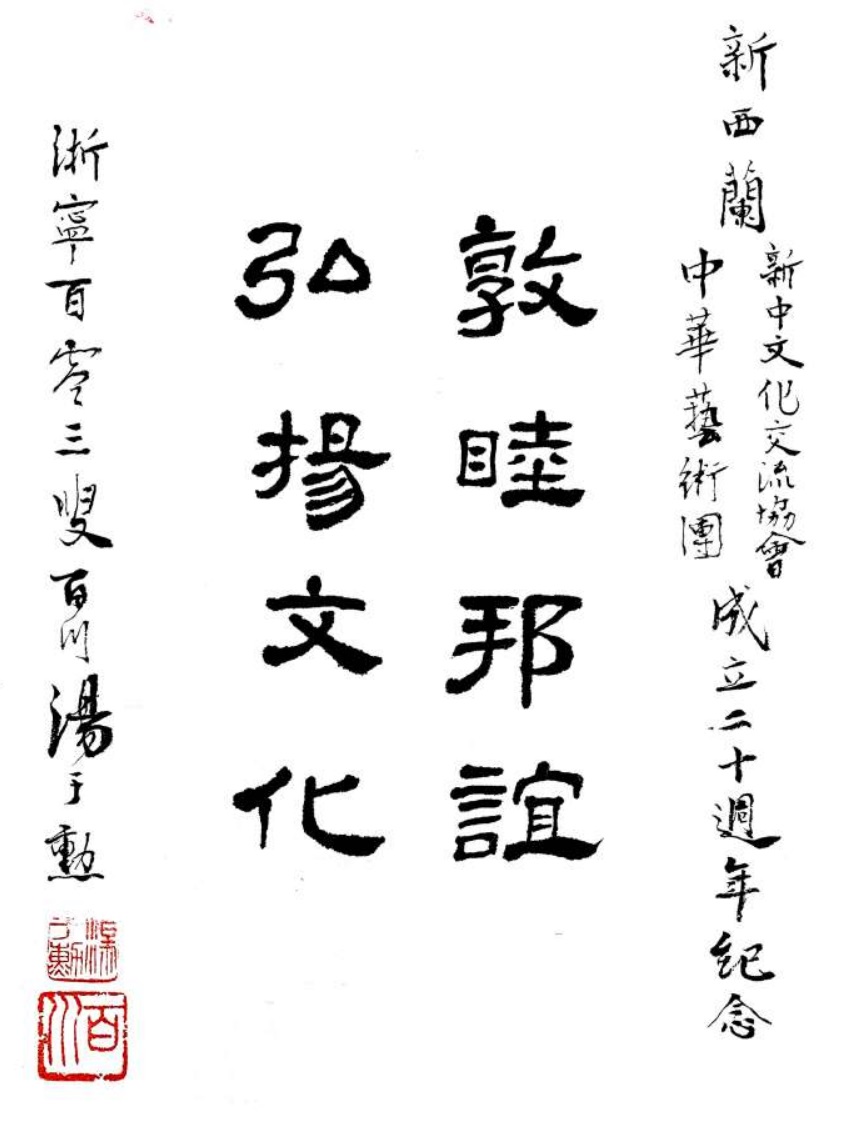 新西蘭
新中文化交流協會
中華藝術團
成立二十週年紀念
敦睦邦誼
弘揚文化
浙寧百零三叟百川湯于勲
湯于勳
百川